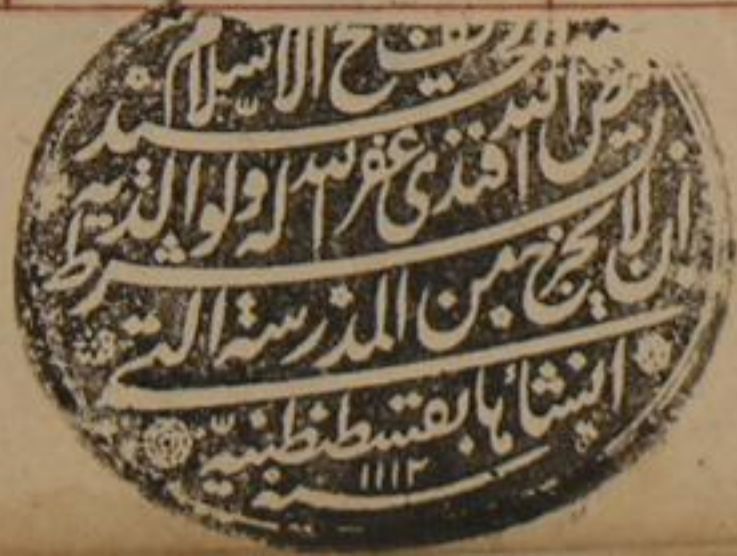 الاسلام السيد
فيض الله افندى غفر الله له ولوالديه
بشرط ان لا يخرج من المدرسة التى
انشأها بقسطنطنية
سنة ١١١٢